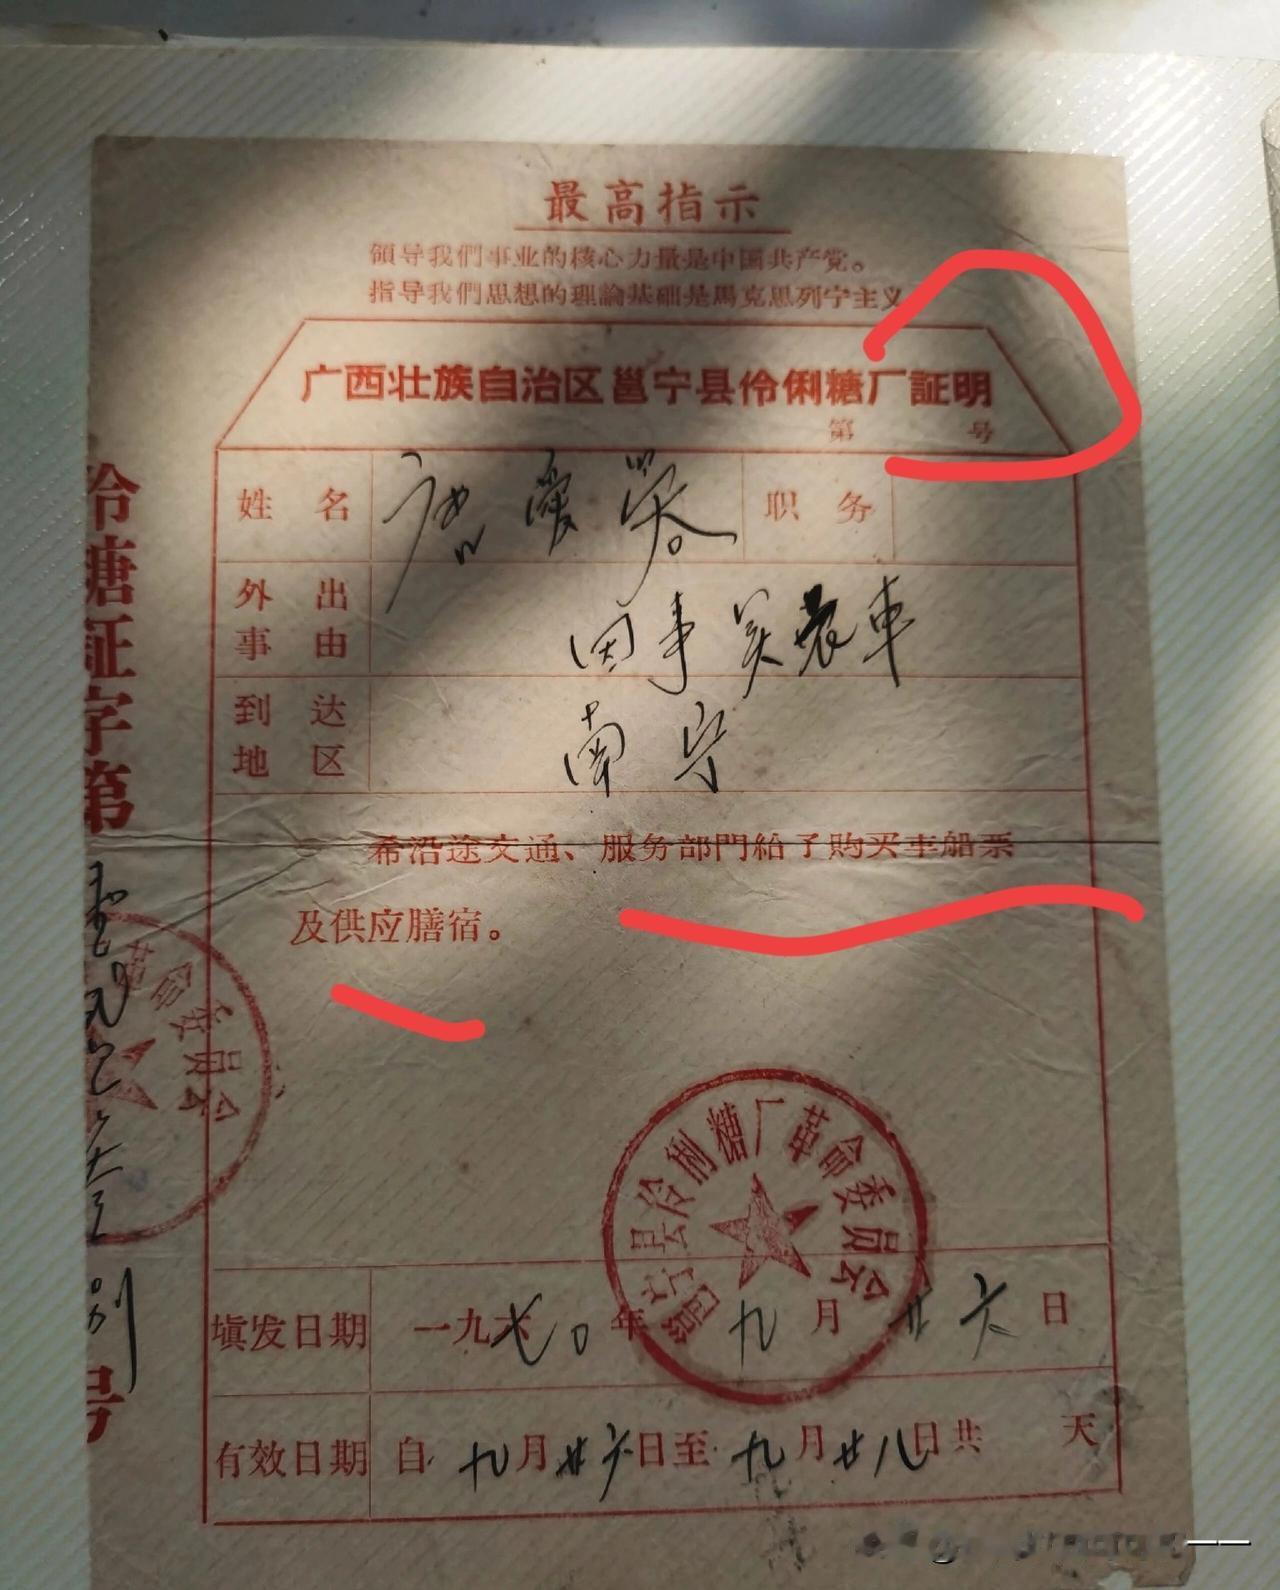 最高指示
領导我們事业的核心力量是中国共产党。
指导我們思想的理論基础是馬克思列宁主义
广西壮族自治区邕宁县伶俐糖厂証明
第 号
姓名 唐爱荣 职务
外出事由 因事
到达地区 南宁
希沿途交通、服务部門給予購买車船票
及供应膳宿。
邕宁县伶俐糖厂革命委员会
填发日期 一九七0年九月廿六日
有效日期 自九月廿六日至九月廿八日共 天
伶糖証字第 号
革命委员会